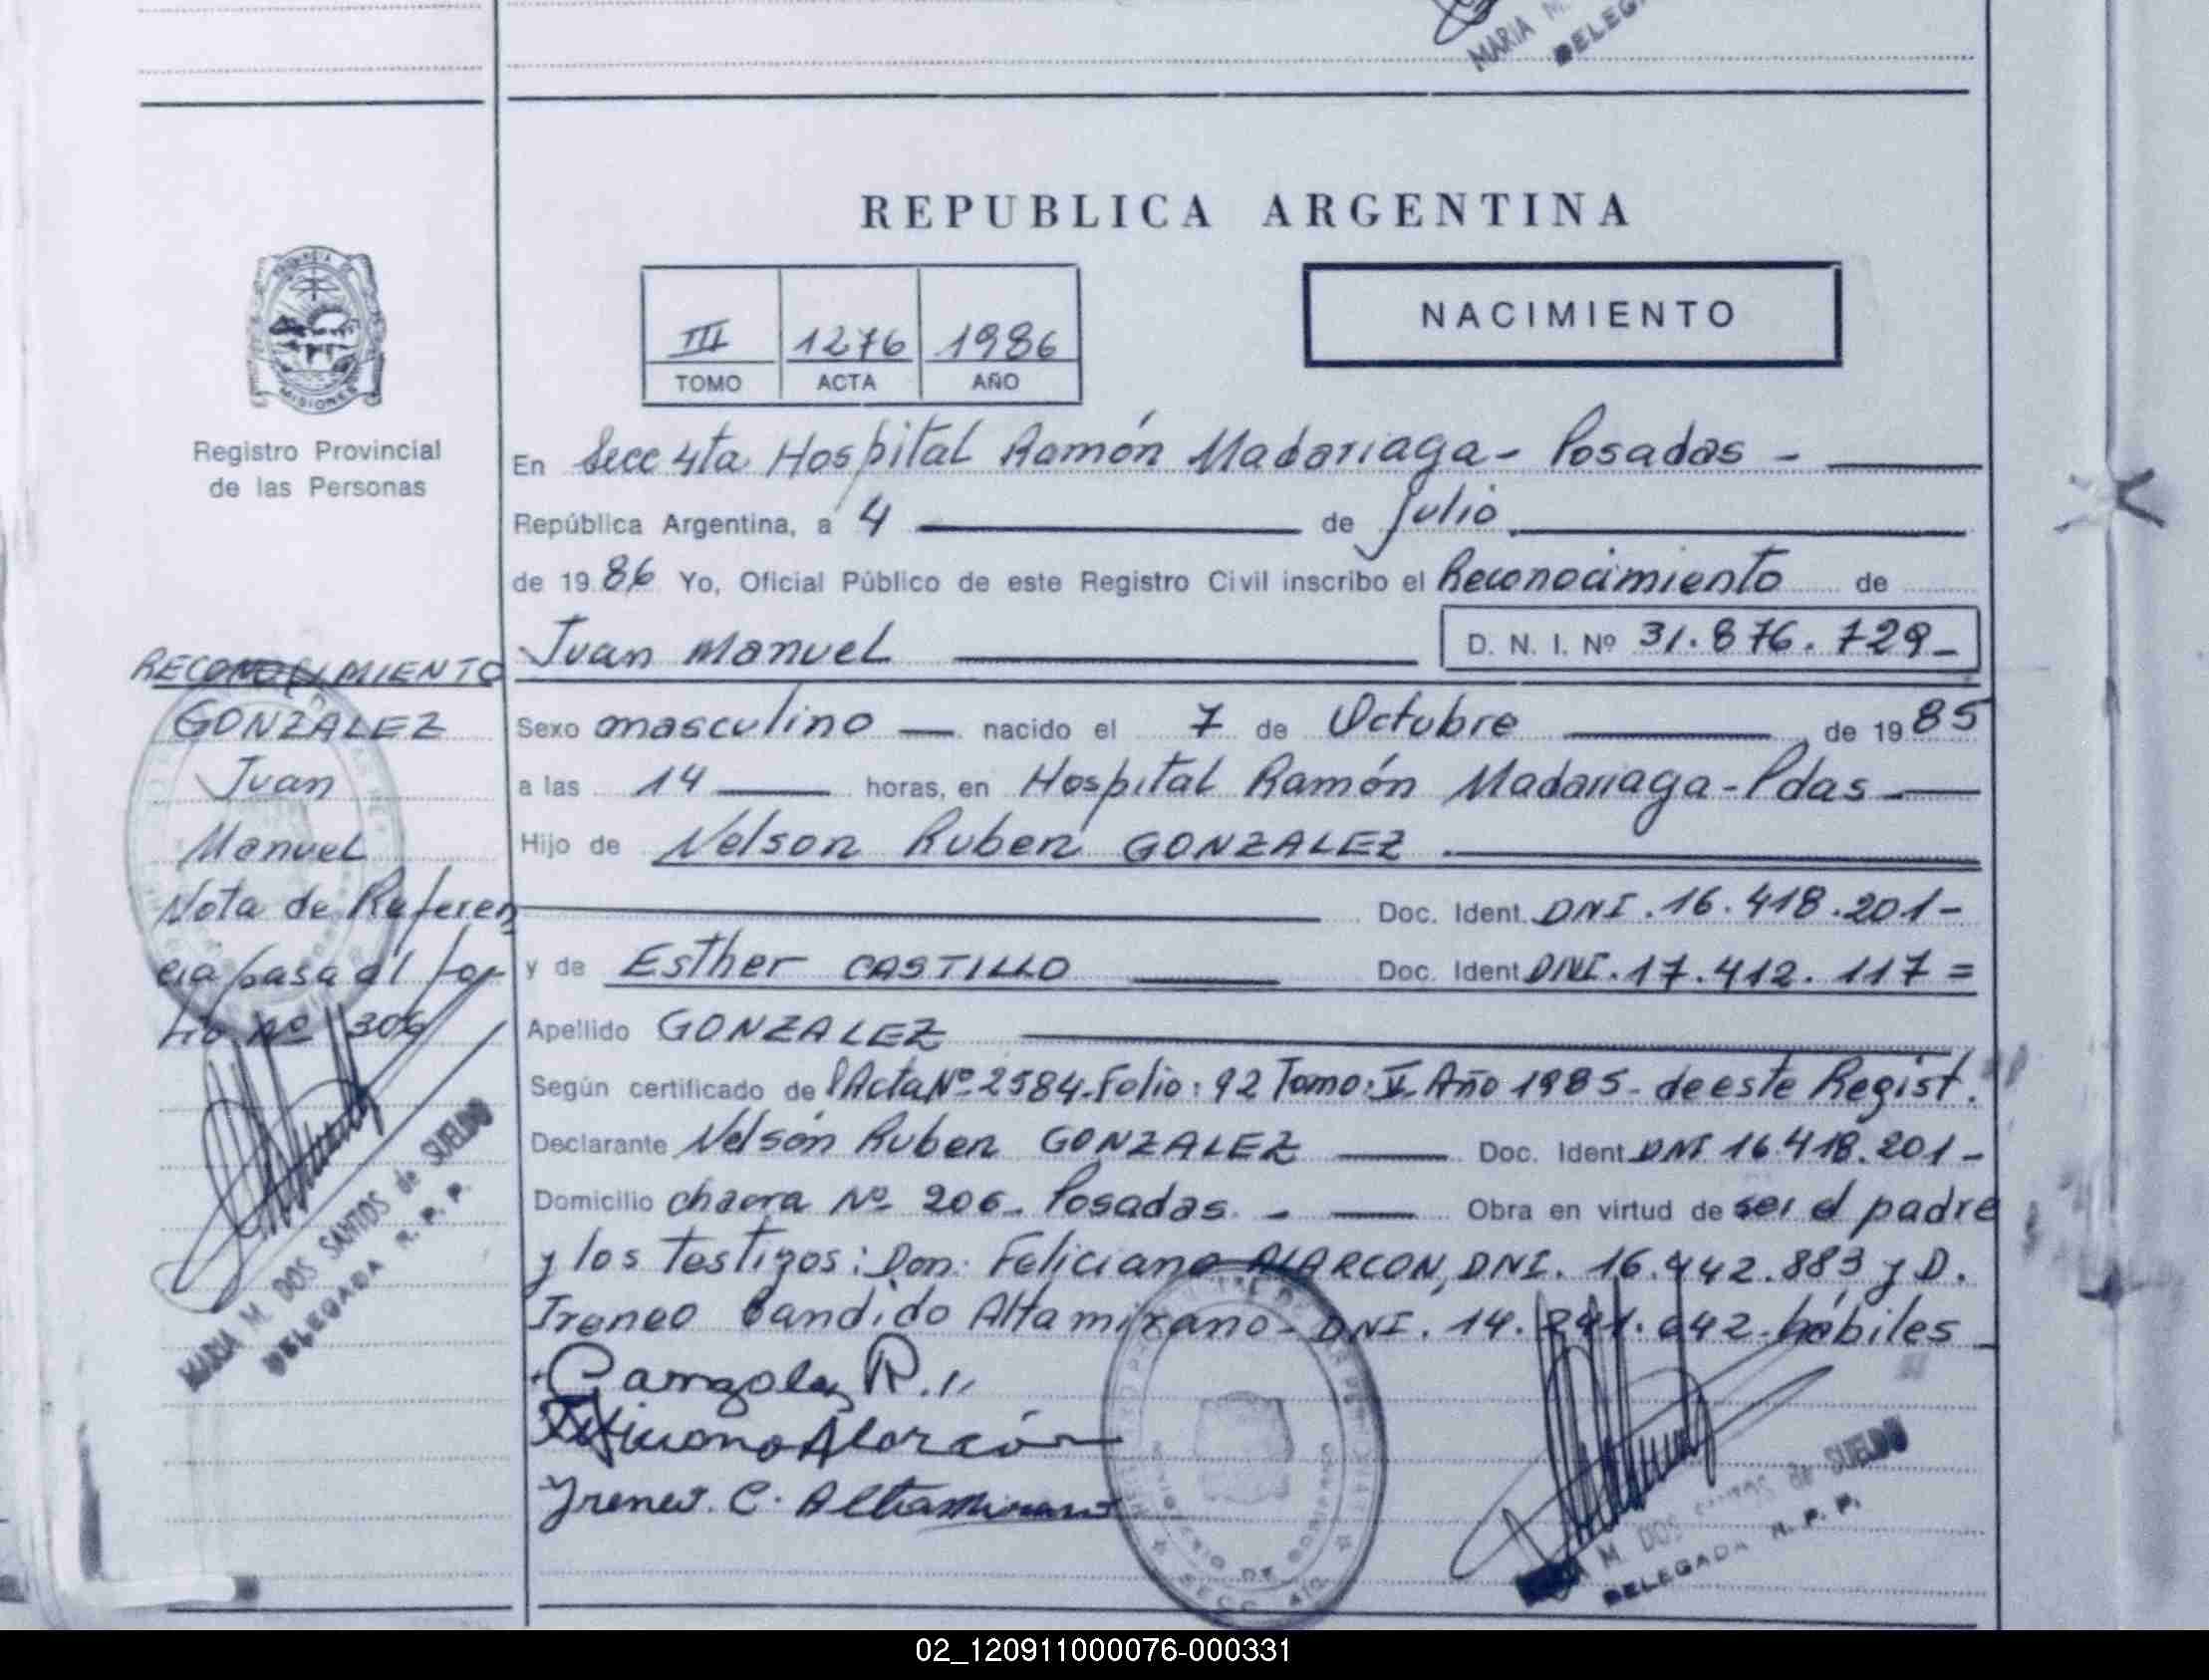 MARIA M.
DELEG
REPUBLICA ARGENTINA
III 1276 1986
TOMO ACTA AÑO
NACIMIENTO
PROVINCIA DE
MISIONES
Registro Provincial
de las Personas
En Secc 4ta Hospital Ramón Madariaga - Posadas -
República Argentina, a 4 de Julio
de 1986 Yo, Oficial Público de este Registro Civil inscribo el Reconocimiento de
Juan Manuel D. N. I. Nº 31.876.729-
Sexo masculino nacido el 7 de Octubre de 1985
a las 14 horas, en Hospital Ramón Madariaga - Pdas
Hijo de Nelson Ruben GONZALEZ
Doc. Ident. DNI. 16.418.201-
y de Esther CASTILLO Doc. Ident. DNI. 17.412.117=
Apellido GONZALEZ
Según certificado de l'Acta Nº 2584. Folio: 92 Tomo: V. Año 1985- de este Regist.
Declarante Nelson Ruben GONZALEZ Doc. Ident DNI 16.418.201-
Domicilio chacra Nº 206- Posadas. - Obra en virtud de ser el padre
y los testigos: Don: Feliciano ALARCON, DNI. 16.442.883 y D.
Ireneo Candido Altamirano- DNI. 14. hábiles
R.
Alarcón
Ireneo. C. Altamirano
RECONOCIMIENTO
GONZALEZ
Juan
Manuel
Nota de Referen
cia pasa al fo
lio Nº 306
MARIA M. DOS SANTOS de SUELDO
DELEGADA R. P. P.
SECC. 4ta.
M. DOS SANTOS de SUELDO
DELEGADA R. P. P.
02_120911000076-000331